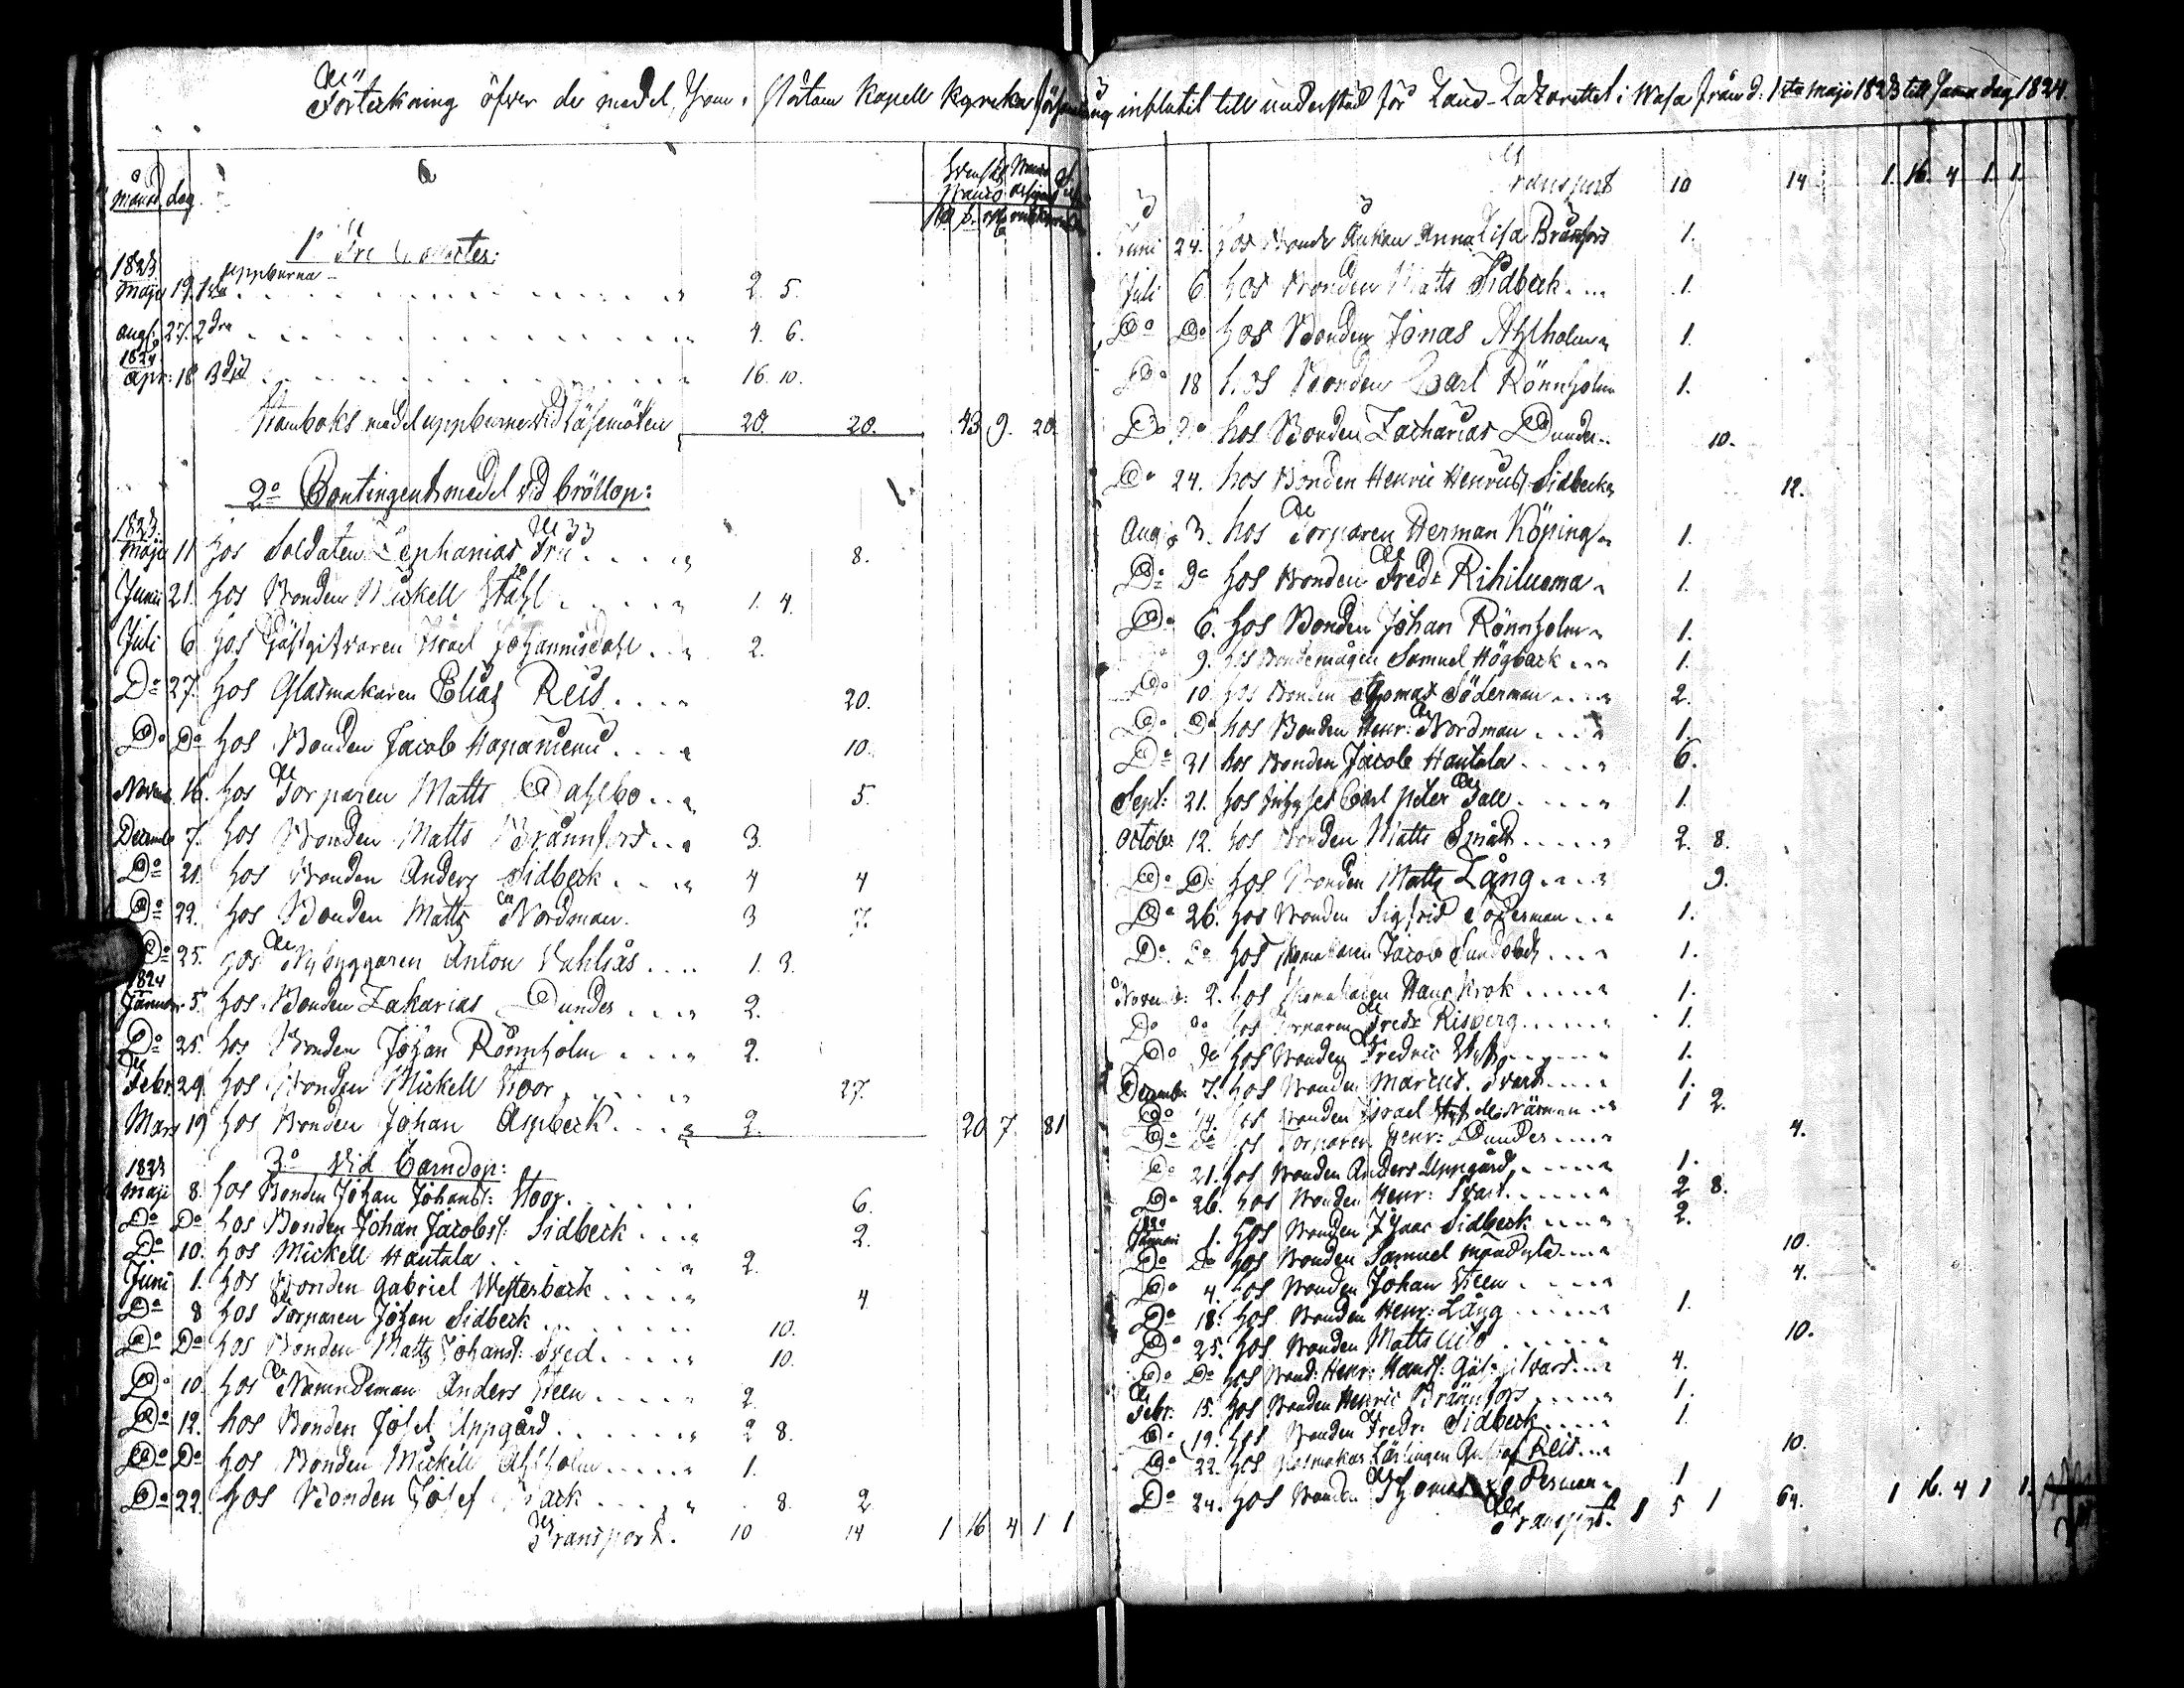 Förteckning öfver de medel, som i Kapell Kyrka församling influtit till understöd för Land-Lazarettet i Wasa från d: 1sta Maji 1823 till samma dag 1824.
månad dag
1o
1823
Maji 19. 1sta uppburna 2 5.
Aug: 27. 2dra 4. 6.
1824
Apr: 18 3dje 16. 10.
Stamboks medel uppburne vid Läsemöten 20. 20. 43 9. 20.
2o Contingentsmedel vid bröllop:
1823.
Maji 11 hos Soldaten Zephanias Fri 8.
Junii 21. hos Bonden Mickell Ståhl 1. 4.
Juli 6 hos Gästgifvaren Israel Johannisdahl 2.
Do 27. hos Glasmakaren Elias Reis 20.
Do Do hos Bonden Jacob Hapaniemi 10.
Novemb. 16. hos Torparen Matts Dahlbo 5.
Decemb. 7. hos Bonden Matts Brännfors 3.
Do 21. hos Bonden Anders Sidbeck 4 4
Do 22. hos Bonden Matts Nordman. 3 7.
Do 25. hos Nybyggaren Anton Vahlsås 1. 3.
1824
Januar. 5. hos Bonden Zakarias Dunder 2.
Do 25. hos Bonden Johan Rönnholm 2.
Febr: 29. hos Bonden Mickell Stoor 27.
Mars 19 hos Bonden Johan Aspbeck 2. 20 7. 81
3o Vid Barndop:
1823
Maji 8. hos Bonden Johan Johanss: Stoor 6.
Do Do hos Bonden Johan Jacobss: Sidbeck 2.
Do 10. hos Mickell Hautala 2.
Juni 1. hos Bonden Gabriel Westerback 4
Do 8 hos Torparen Johan Sidbeck 10.
Do Do hos Bonden Matts Johanss: Sved 10.
Do 10. hos Nämndeman Anders Steen 2.
Do 12. hos Bonden Josef Uppgård 2 8.
Do Do hos Bonden Mickell Ahlholm 1.
Do 22. hos Bonden Josef 8. 2
Transport. 10 14 1 16 4 1 1
Transport 10 14 1. 16. 4 1. 1.
Juni 24. hos Bonde Änkan Anna Lisa Brännfors 1.
Juli 6. hos Bonden Matts Sidbeck 1.
Do Do hos Bonden Jonas Ahlholm 1.
Do 18 hos Bonden Carl Rönnholm 1.
Do Do hos Bonden Zacharias Dunder 10.
Do 24. hos Bonden Henric Henricss. Sidbeck 12.
Aug: 3. hos Torparen Herman Köping 1.
Do Do hos Bonden Fredr Rihiluoma 1.
Do 6. hos Bonden Johan Rönnholm 1.
Do 9. hos Bondemågen Samuel Högback 1.
Do 10. hos Bonden Thomas Söderman 2.
Do Do hos Bonden Henr: Nordman 1.
Do 31 hos Bonden Jacob Hautala 6.
Sept: 21. hos Inhyses Carl Peter Tall 1.
Octob: 12. hos Bonden Matts Småt 2. 8.
Do Do hos Bonden Matts Lång 9.
Do 26. hos Bonden Sigfrid Söderman 1.
Do Do hos Skomakaren Jacob Sundback 1.
Novemb: 2. hos Skomakaren Hans Krok 1.
Do Do hos Torparen Fredr Risberg 1.
Do Do hos Bonden Fredric 1.
Decemb: 7. hos Bonden Marcus Svart 1.
Do 14. hos Bonden Israel 1 2.
Do Do hos Torparen Henr: Dunder 4.
Do 21. hos Bonden Anders Uppgård 1.
Do 26. hos Bonden Henr: Svart 2 8.
Januari 1. hos Bonden Isaac Sidbeck 2.
Do Do hos Bonden Samuel 10.
Do 4. hos Bonden Johan Steen 4.
Do 18. hos Bonden Henr: Lång 1.
Do 25. hos Bonden Matts 10.
Do Do hos Bond: Henr: Hanss: 4.
Febr: 15. hos Bonden Henric Brännfors 1.
Do 19. hos Bonden Fredr: Sidbeck 1.
Do 22. hos Glasmakar Lärlingen Gustaf Reis 10.
Do 24. hos Bonden Thomas 1
Transport. 1 5 1 64. 1 16. 4 1 1.